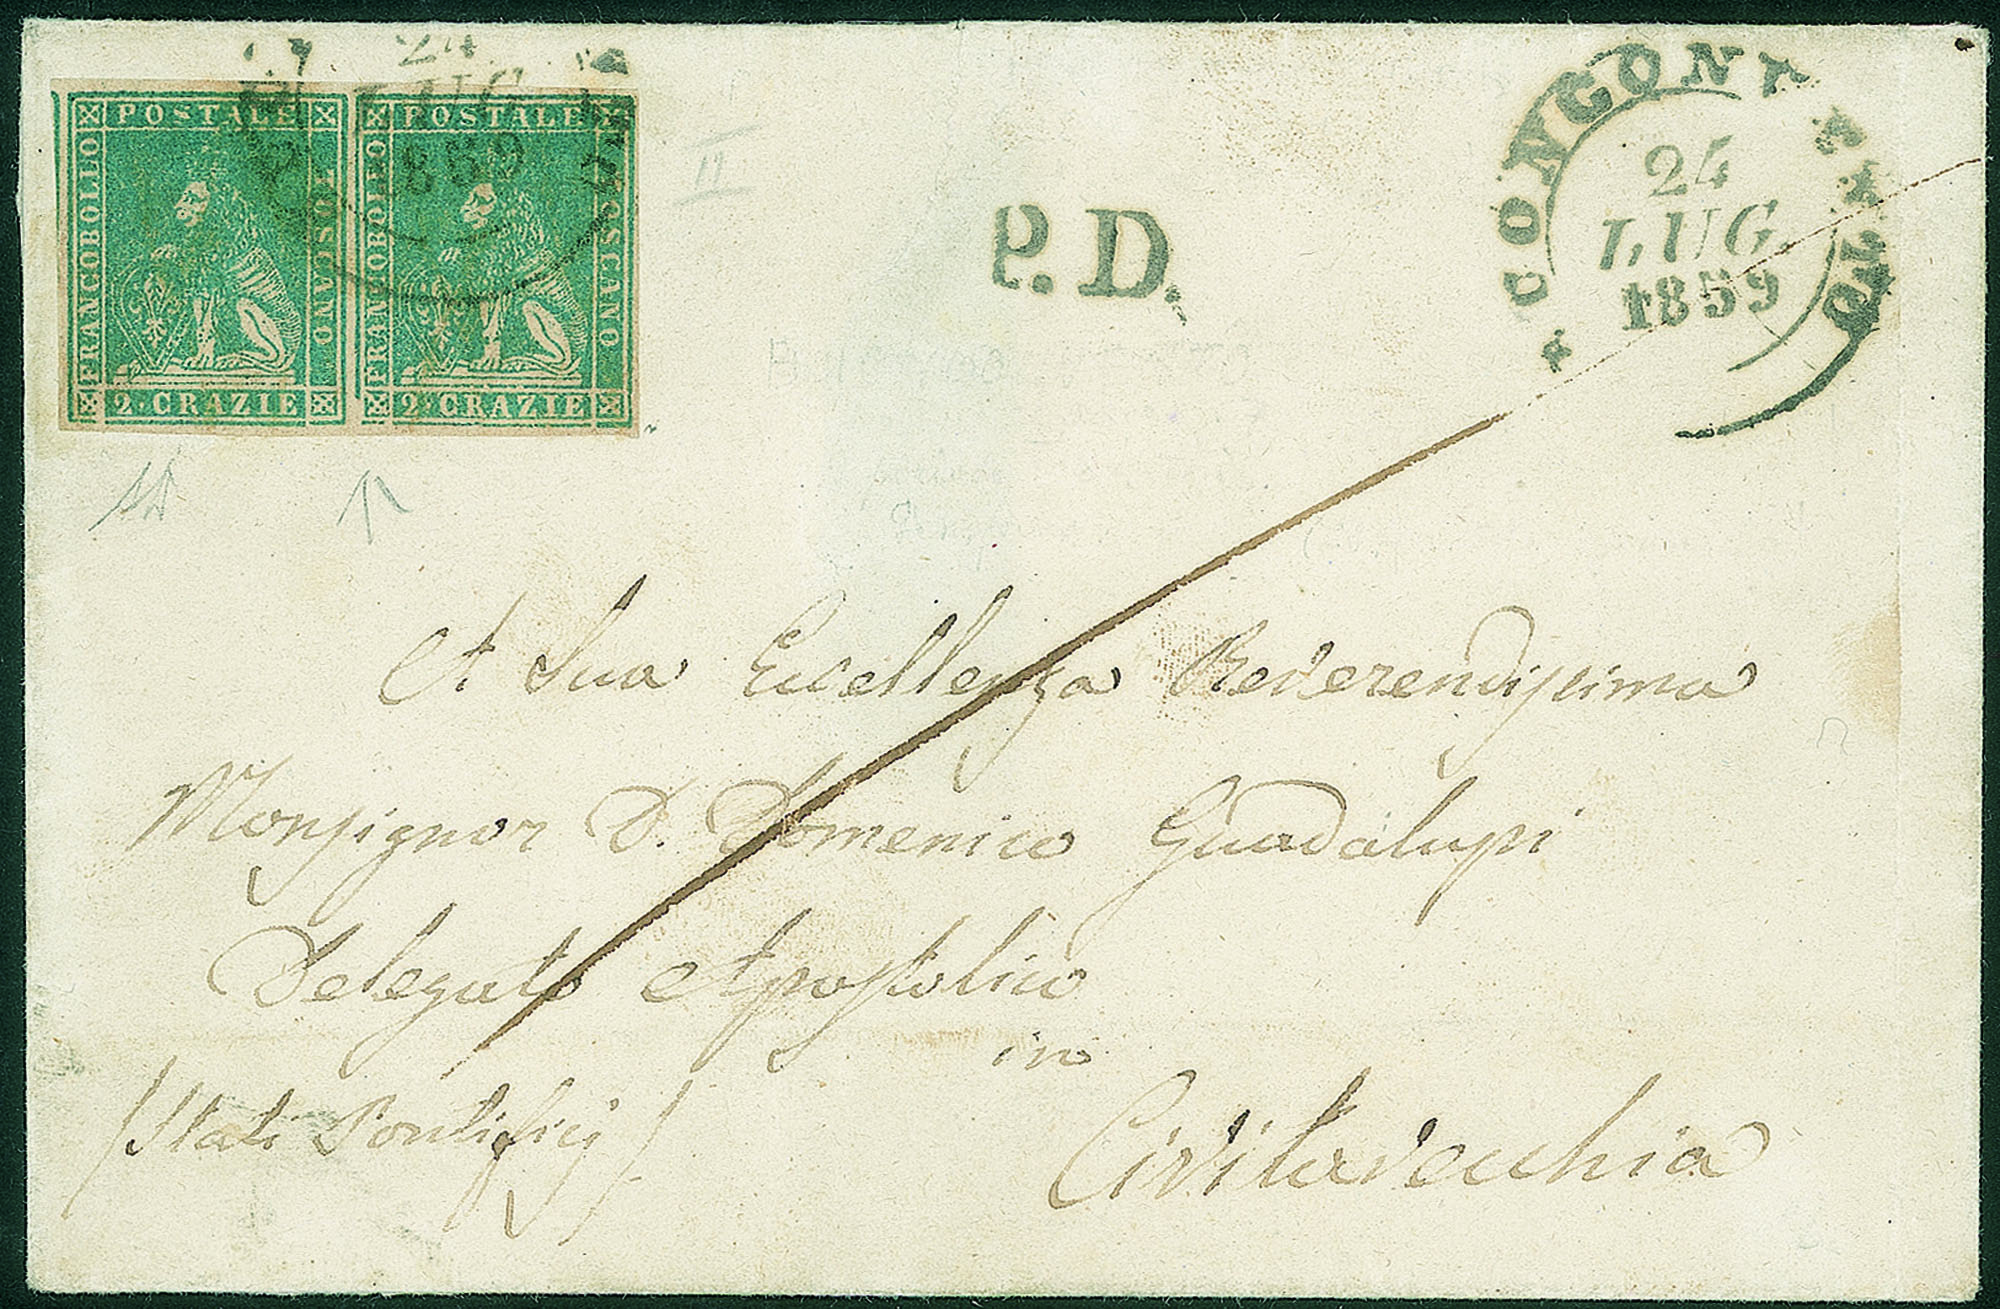 24
LUG
1859
POSTALE
FRANCOBOLLO
TOSCANO
2·CRAZIE
POSTALE
FRANCOBOLLO
TOSCANO
2·CRAZIE
P.D.
24
LUG
1859
A Sua Eccellenza Reverendissima
Monsignor D. Domenico Guadalupi
Delegato Apostolico
in
(Stati Pontificj)
Civitavecchia